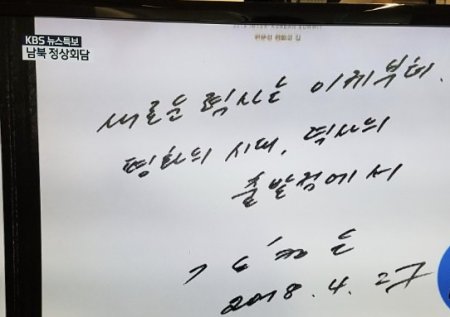 KBS 뉴스특보
남북 정상회담
KOREAN SUMMIT
판문점 평화의 집
새로운 력사는 이제부터.
평화의 시대, 력사의
출발점에서
김정은
2018. 4. 27